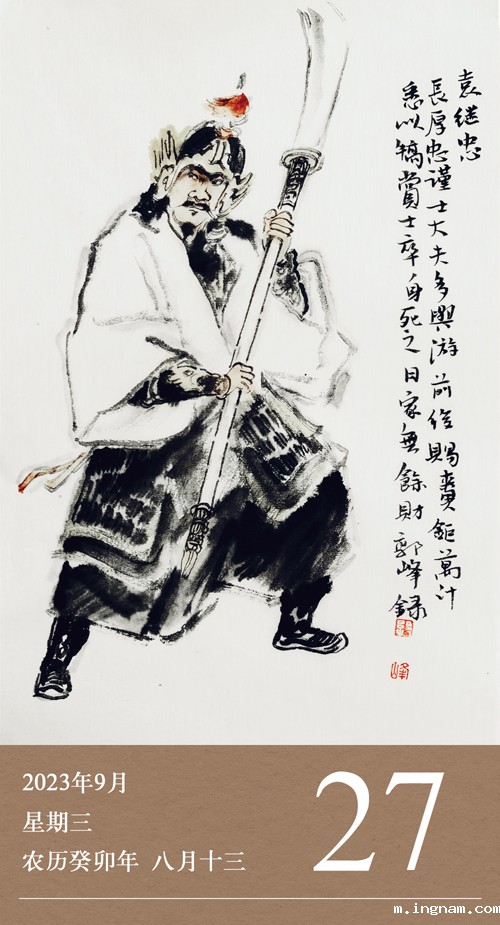 袁继忠
長厚忠謹士大夫多與游前後賜賚鉅萬計
悉以犒賞士卒身死之日家無餘財郭峰録
峰
2023年9月
星期三
农历癸卯年 八月十三
27
m.ingnam.com